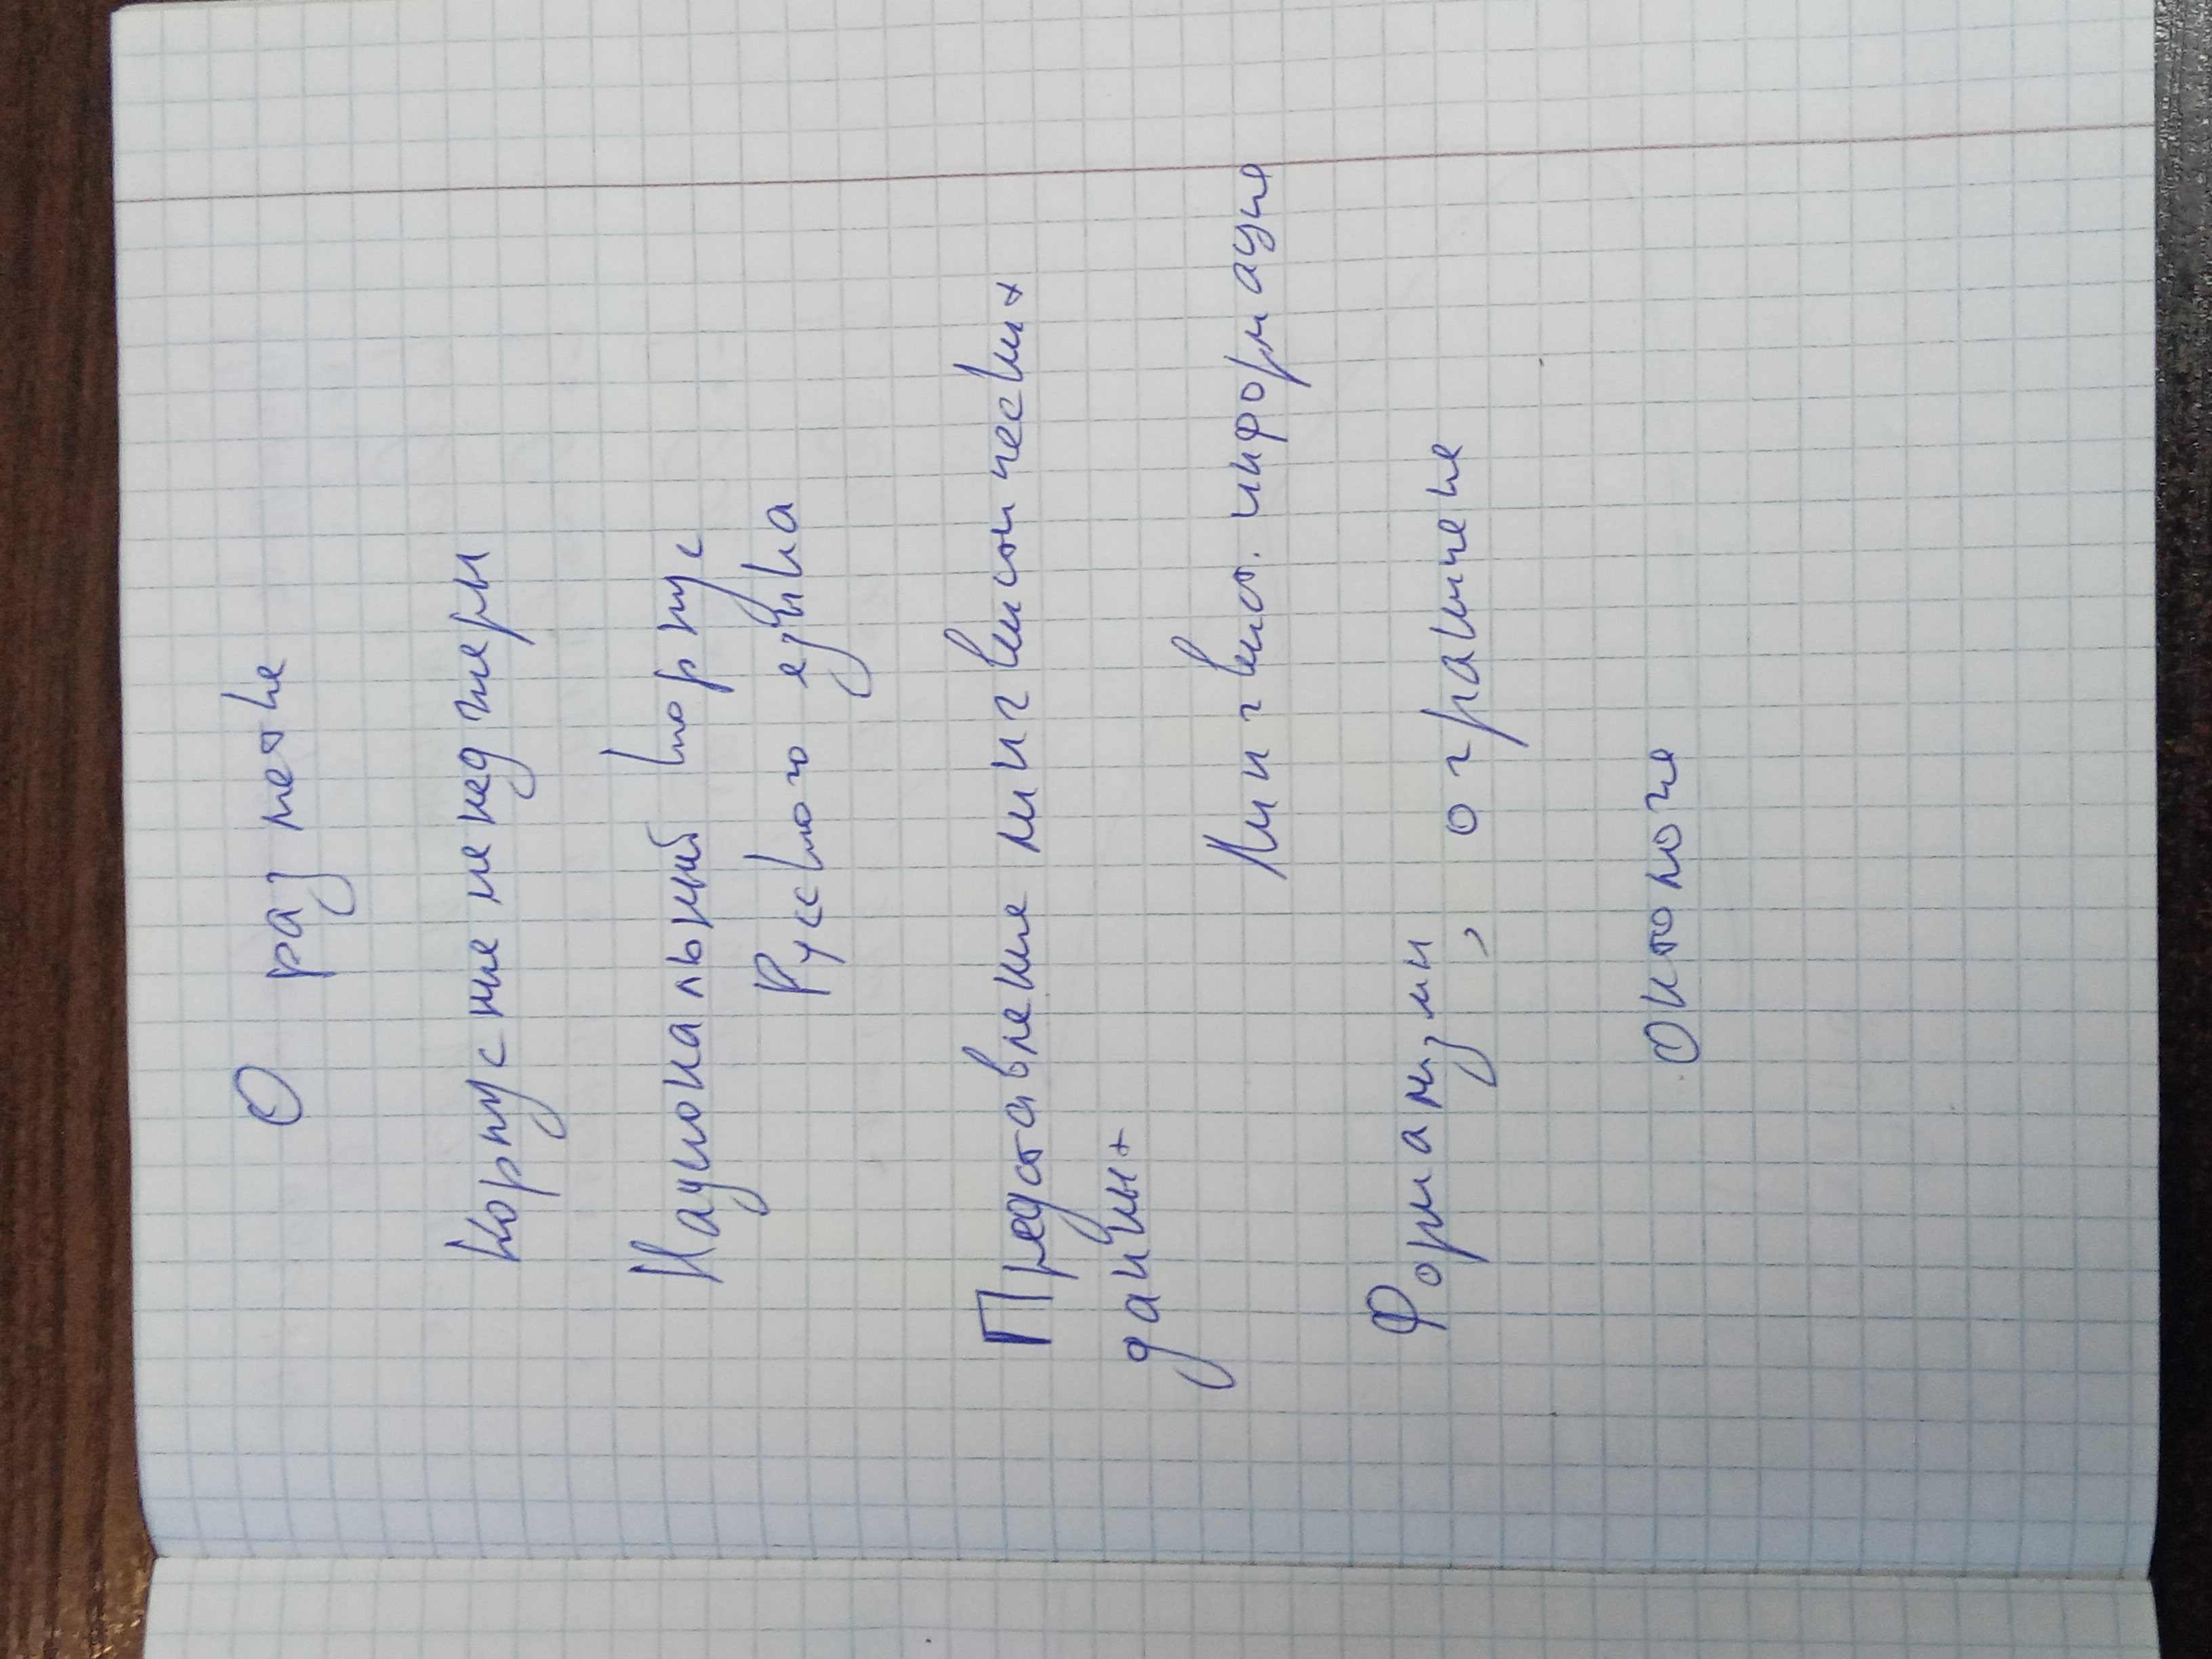 О разметке
Корпусные менеджеры
Национальный корпус
Русского языка
Представление лингвистических
данных
Лингвист. информация
Формализмы, ограничение
Онтологие